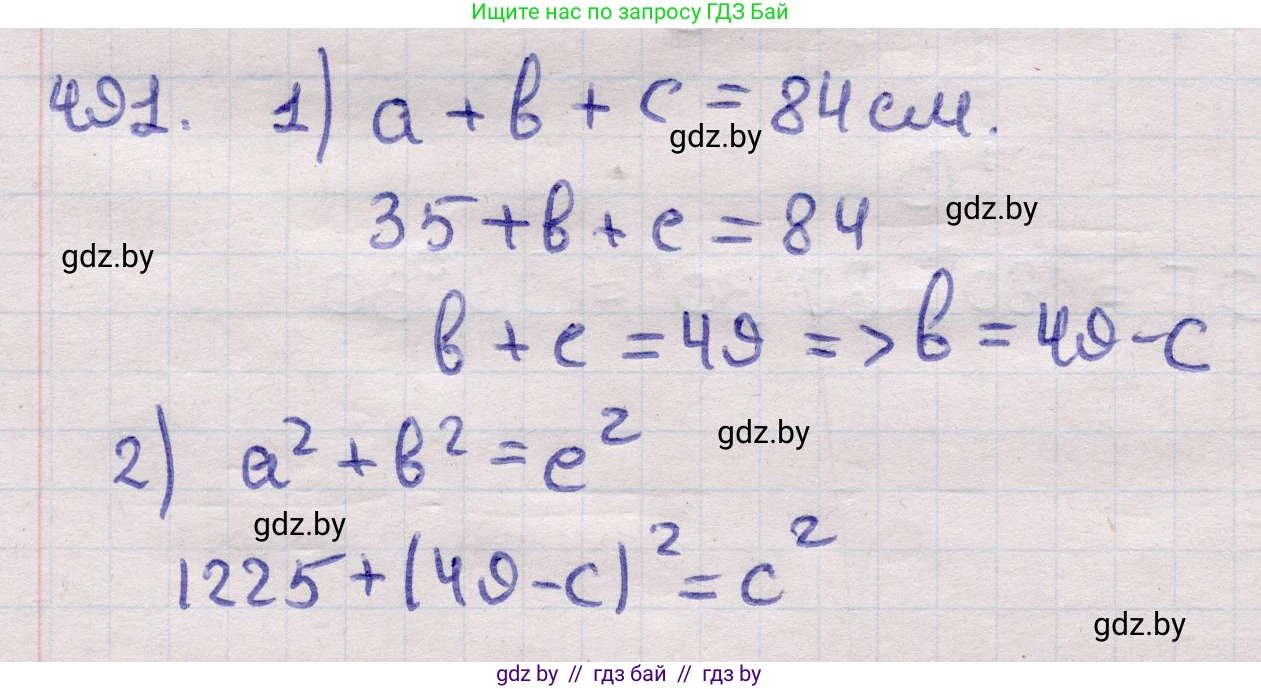 Ищите нас по запросу ГДЗ Бай
491. 1) a + в + c = 84 см.
gdz.by
35 + в + c = 84
gdz.by
gdz.by
в + c = 49 => в = 49 - c
2) a² + в² = c²
gdz.by
gdz.by
1225 + (49 - c)² = c²
gdz.by
gdz by // гдз бай // гдз by